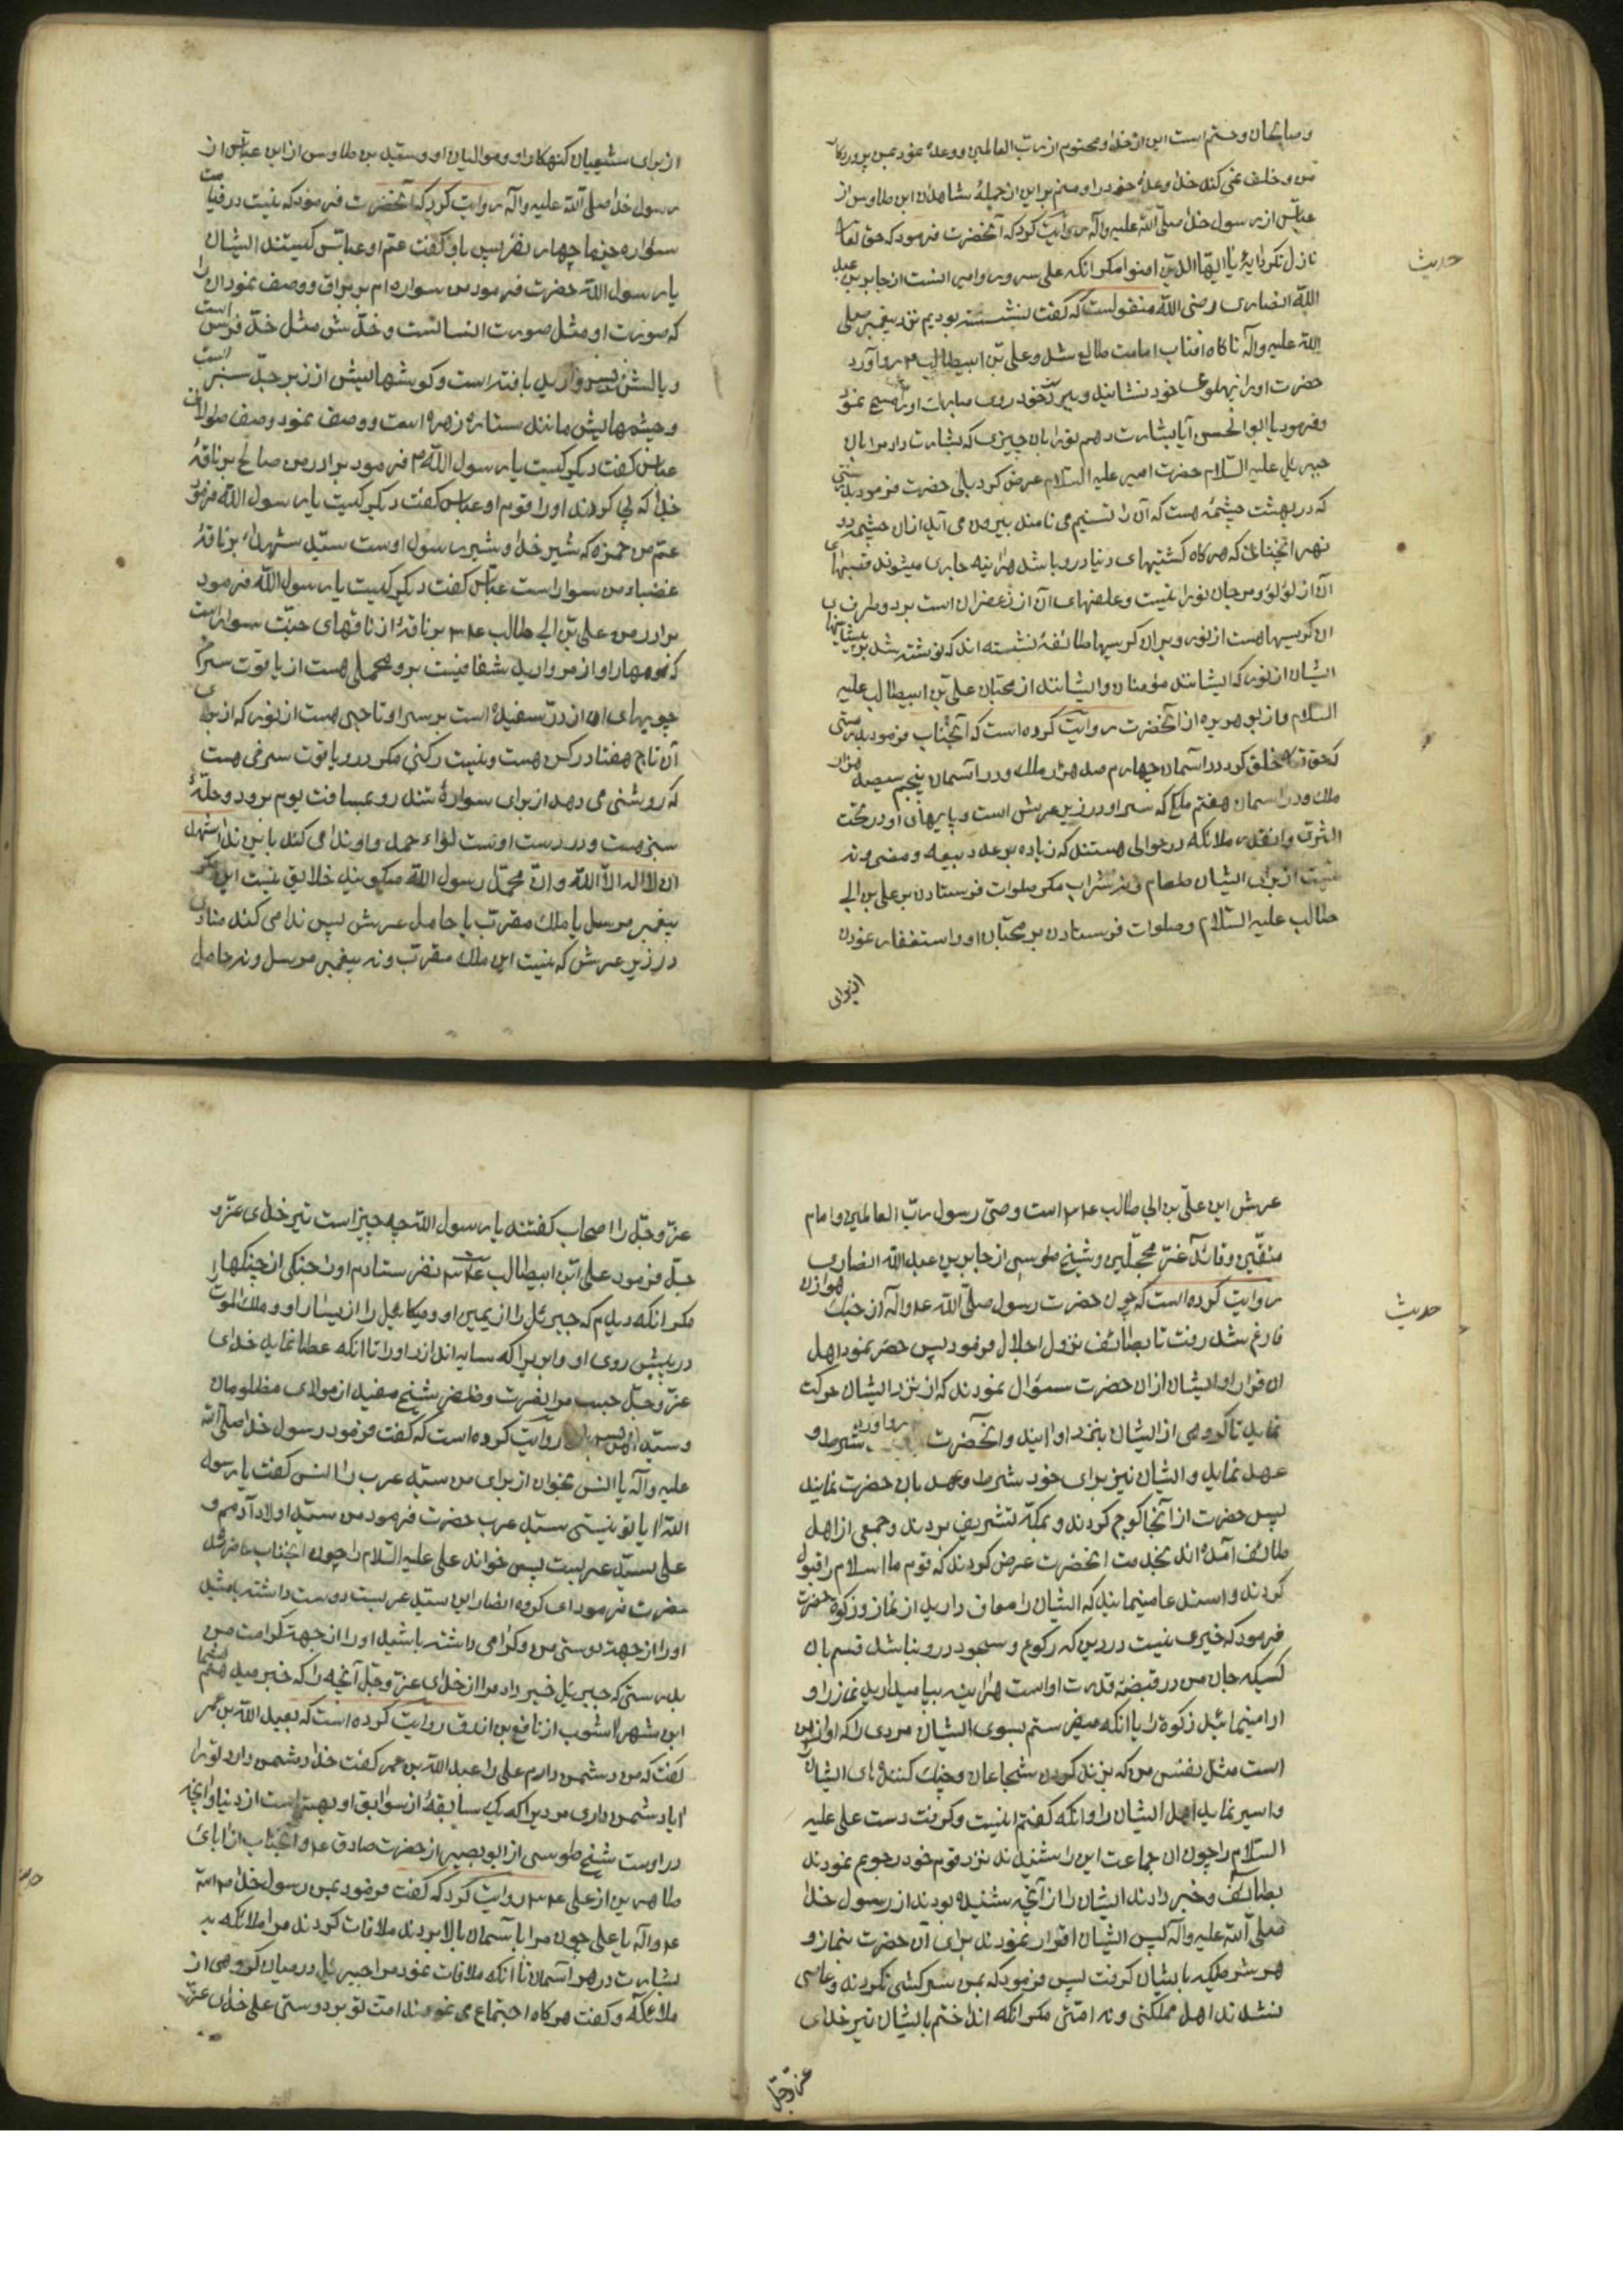 و صایحان و حتم است این از خدا و محتوم از رب العالمین و وعدهٔ خود بمن پروردکار
من و خلف نمی کند خدا وعدهٔ خود را و منم بر این از جملهٔ شاهدان ابن طاوس از
عباس از رسول خدا صلی الله علیه وآله روایت کرد که آنحضرت فرمود که حق تعا
نازل نکرد آیهٔ یا ایها الذین امنوا مکر انکه علی سرور و امیر انست از جابر بن عبد
الله انصاری رضی الله منقولست که کفت نشسته بودیم نزد پیغمبر صلی
الله علیه وآله ناکاه افتاب امامت طالع شد و علی بن ابیطالب ۴ رو آورد
حضرت او را بپهلوی خود نشانید و خود روی مبارک او را مسح نمود
و فرمود یا ابوالحسن آیا بشارت دهم تو را بان چیزی که بشارت داد مرا بان
جبرییل علیه السلام حضرت امیر علیه السلام عرض کرد بلی حضرت فرمود بدرستی
که در بهشت چشمهٔ هست که آن را تسنیم می نامند بیرون می آید از ان چشمه دو
نهر انچنانی که هر کاه کشتیهای دنیا در او باشد هراینه جاری میشوند قصبهای
آن از لؤلؤ و مرجان تو را نیست و علفهای آن از زعفران است بر دو طرف
ان کرسیها هست از نور و بر ان کرسیها طائفهٔ نشسته اند که نوشته شد بر پیشانیها
ایشان از نور که ایشانند مؤمنان و ایشانند از محبان علی بن ابیطالب علیه
السلام و از ابو هریره از آنحضرت روایت کرده است که آنجناب فرمود بدرستی
که حق تعالی خلق کرد در اسمان چهارم صد هزار ملک و در اسمان پنجم سیصد هزار
ملک و در اسمان هفتم ملکی که سر او در زیر عرش است و پایهای او در تحت
الثری و انقدر ملائکه در حوالی هستند که زیاده بر عدد ربیعه و مضر و نه
نیست از برای ایشان طعام و نه شراب مکر صلوات فرستادن بر علی بن ابی
طالب علیه السلام و صلوات فرستادن بر محبان او و استغفار نمودن
از برای
حدیث
از برای شیعیان کنهکار او و موالیان او و سید بن طاوس از ابن عباس از
رسول خدا صلی الله علیه وآله روایت کرد که آنحضرت فرمود که نیست در قیامت
سواره جز ما چهار نفر پس باو کفت عم او عباس کیستند ایشان
یا رسول الله حضرت فرمود من سواره ام بر براق و وصف نمود ان را
که صورت او مثل صورت انسانست و خدش مثل خد فرس است
و یالش مروارید بافته است و کوشهایش از زبرجد سبز است
و چشمهایش مانند ستارهٔ زهره است و وصف نمود وصف طولانی
عباس کفت دیکر کیست یا رسول الله ۴ فرمود برادر من صالح بر ناقهٔ
خدا که پی کردند او را قوم او عباس کفت دیکر کیست یا رسول الله فرمود
عم من حمزه که شیر خدا و شیر رسول اوست سید شهدا بر ناقهٔ
عضباء من سوار است عباس کفت دیکر کیست یا رسول الله فرمود
برادر من علی بن ابی طالب ۴ بر ناقهٔ از ناقهای جنت سوار است
که مهار او از مروارید شفافیست بر و محملی هست از یاقوت سرخ
چوبهای ان از در سفید است بر سر او تاجی هست از نور که از برای
آن تاج هفتاد رکن هست و نیست رکنی مکر در و یاقوت سرخی هست
که روشنی می دهد از برای سوارهٔ تند رو بمسافت یوم بر او دو حلهٔ
سبز هست و در دست اوست لواء حمد و او ندا می کند باین ندا اشهد
ان لا اله الا الله و ان محمدا رسول الله میکویند خلایق نیست این مکر
پیغمبر مرسل یا ملک مقرب یا حامل عرش پس ندا می کند منادی
در زیر عرش که نیست این ملک مقرب و نه پیغمبر مرسل و نه حامل
عرش این علی بن ابی طالب ۴ است وصی رسول رب العالمین و امام
متقین و قائد غر محجلین و شیخ طوسی از جابر بن عبد الله انصاری
روایت کرده است که چون حضرت رسول صلی الله ع وآله از جنک هوازن
فارغ شد رفت تا بطائف نزول اجلال فرمود پس حصر نمود اهل
ان قرار او ایشان از ان حضرت سؤال نمودند که از نزد ایشان حرکت
نماید تا کروهی از ایشان بنزد او ایند و انحضرت شرط و
عهد نماید و ایشان نیز برای خود شرط و عهد بان حضرت نمایند
پس حضرت از آنجا کوچ کردند و بمکه تشریف بردند و جمعی از اهل
طائف آمده اند بخدمت انحضرت عرض کردند که قوم ما اسلام را قبول
کردند و استدعا مینمایند که ایشان را معاف دارید از نماز و زکوة حضرت
فرمود که خیری نیست در دین که رکوع و سجود در و نباشد قسم بان
کسیکه جان من در قبضهٔ قدرت اوست هراینه بپا میدارید نماز را و
ادا مینمائید زکوة را یا انکه میفرستم بسوی ایشان مردی را که او از من
است مثل نفس من که بزند کردن شجاعان و جنک کننده های ایشان
و اسیر نماید اهل ایشان را و انکه کفتم اینست و کرفت دست علی علیه
السلام را چون ان جماعت این را شنیدند نزد قوم خود رجوع نمودند
بطائف و خبر دادند ایشان را از آنچه شنیده بودند از رسول خدا
صلی الله علیه وآله پس ایشان اقرار نمودند برای آن حضرت بنماز و
هر شرطیکه با ایشان کرفت پس فرمود که بمن سرکشی نکردند و عاصی
نشدند اهل مملکتی و نه امتی مکر انکه انداختم بایشان تیر خدای
عز و جل
حدیث
عز و جل را اصحاب کفتند یا رسول الله چه چیز است تیر خدای عز و
جل فرمود علی بن ابیطالب نفرستادم او را جنکی از جنکها را
مکر انکه دیدم که جبرئیل را از یمین او و میکائیل را از یسار او و ملک الموت
در پیش روی او و ابریرا که سایه اندازد او را تا انکه عطا نماید خدای
عز و جل حبیب مرا نصرت و ظفر شیخ مفید از مولای مظلومان
و سید روایت کرده است که کفت فرمود رسول خدا صلی الله
علیه وآله یا انس بخوان از برای من سید عرب را انس کفت یا رسول
الله ایا تو نیستی سید عرب حضرت فرمود من سید اولاد آدمم و
علی سید عربست پس خواند علی علیه السلام را چون انجناب حاضر شد
حضرت فرمود ای کروه انصار این سید عربست دوست داشته باشید
او را از جهت دوستی من و کرامی داشته باشید او را از جهت کرامت من
بدرستی که جبرئیل خبر داد مرا از خدای عز و جل آنچه را که خبر میدهم شما
ابن شهر اشوب از نافع بن ازرق روایت کرده است که بعبد الله بن عمر
کفت که من دشمن دارم علی را عبد الله بن عمر کفت خدا دشمن دارد تو را
ایا دشمن داری مردیرا که یک سابقهٔ از سوابق او بهتر است از دنیا و آنچه
در اوست شیخ طوسی از ابو بصیر از حضرت صادق ع و آنجناب از ابای
طاهرین از علی ع روایت کرد که کفت فرمود بمن رسول خدا صلی الله
ع وآله یا علی چون مرا باسمان بالا بردند ملاقات کردند مرا ملائکه به
بشارت در هر اسمان تا انکه ملاقات نمود مرا جبرئیل در میان کروهی از
ملائکه و کفت هر کاه اجتماع می نمودند امت تو بر دوستی علی خدای عز